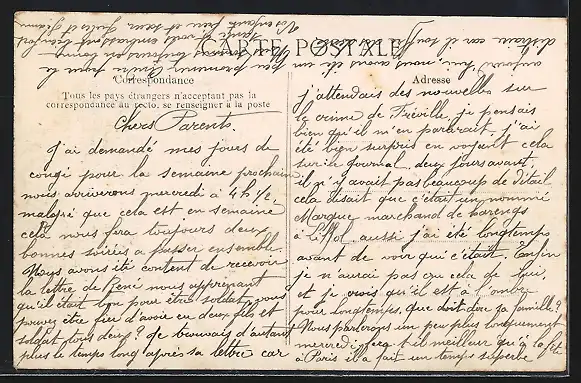 CARTE POSTALE
Correspondance
Tous les pays étrangers n'acceptent pas la
correspondance au recto, se renseigner à la poste
Chers Parents.
J'ai demandé mes jours de
congé pour la semaine prochain
nous arriverons mercredi à 4h ½,
malgré que cela est en semaine
cela nous fera toujours deux
bonnes soirées a passer ensemble
Nous avons été content de recevoir
la lettre de René nous apprenant
qu'il était bon pour être soldat, vous
pouvez être fier d'avoir eu deux fils et
soldat tous deux? Je trouvais d'autant
plus le temps long après sa lettre car
Adresse
j'attendais des nouvelles sur
le crime de Fréville, je pensais
bien qu'il m'en parlerait. j'ai
été bien surpris en voyant cela
sur le journal, deux jours avant,
il n'y avait pas beaucoup de détail
cela disait que c'était un nommé
Marque marchand de harengs
à Liffol, aussi j'ai été longtemps
avant de voir qui c'était. Enfin
je n'aurai pas cru cela de lui,
et je crois qu'il est à l'ombre
pour longtemps, que doit dire sa famille?
Nous parlerons un peu plus longuement
mercredi, fera t-il meilleur qu'à la fête
à Paris il a fait un temps superbe
aujourd'hui, nous avons été un peu promener